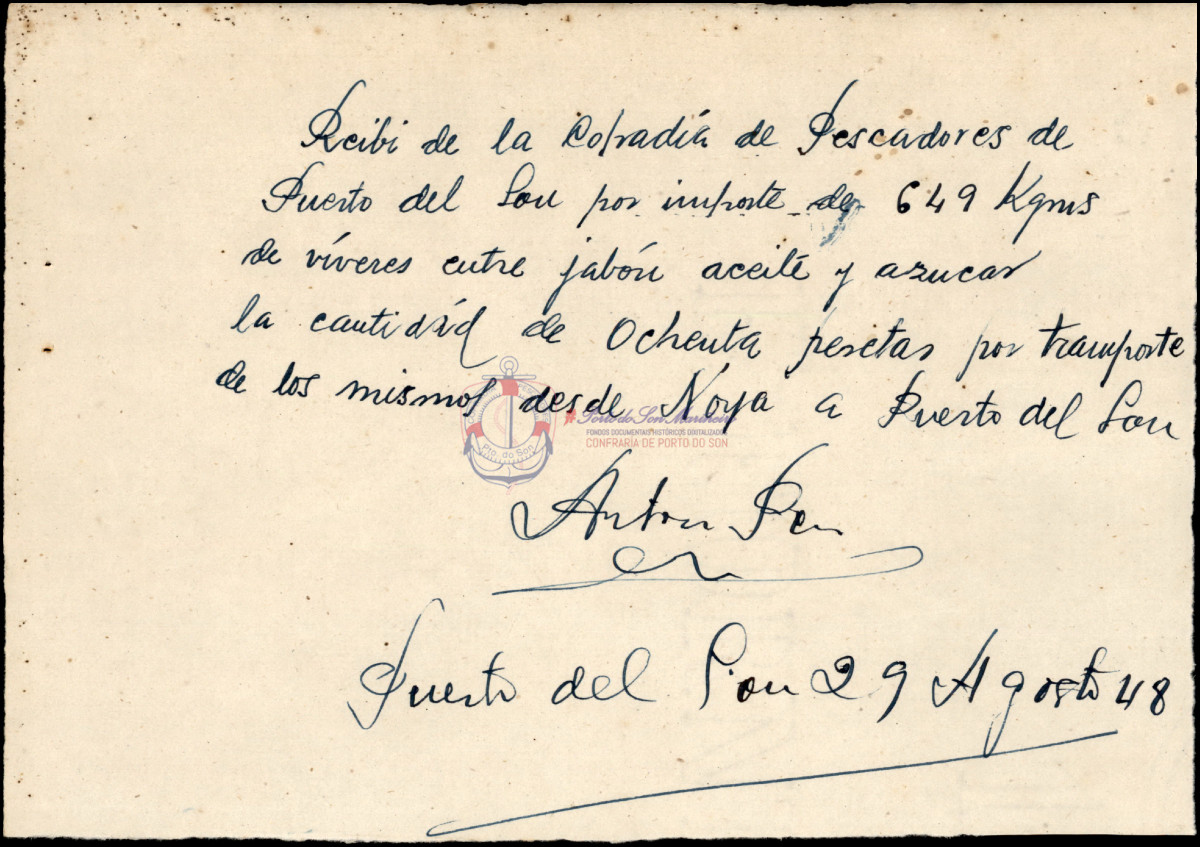 Recibi de la Cofradía de Pescadores de
Puerto del Son por importe de 649 Kgms
de víveres entre jabón aceite y azucar
la cantidad de Ochenta pesetas por transporte
de los mismos desde Noya a Puerto del Son
#Porto do Son Mariñeiro
FONDOS DOCUMENTAIS HISTÓRICOS DIGITALIZADOS
CONFRARÍA DE PORTO DO SON
Pto. do Son
Anton
Puerto del Son 29 Agosto 48